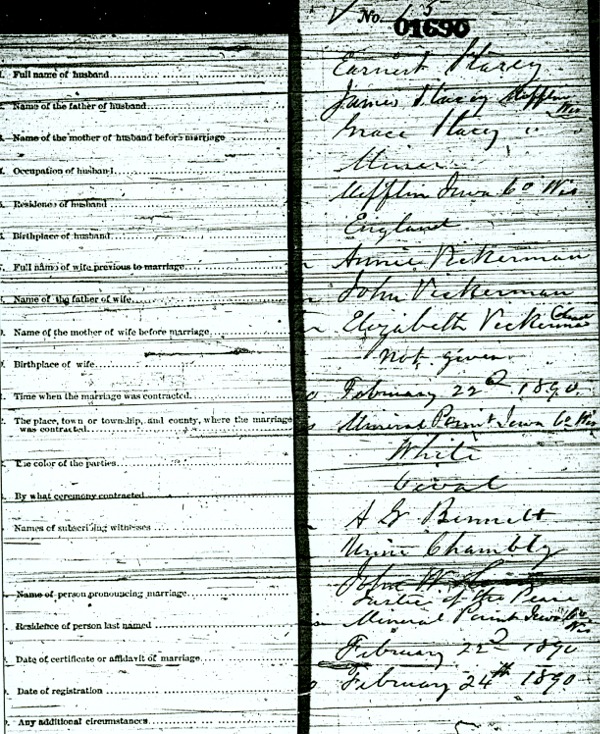 No. 15
01690
Full name of husband Earnest Stacey
Name of the father of husband James Stacey Mifflin Wis
Name of the mother of husband before marriage Grace Stacey " "
Occupation of husband Miner
Residence of husband Mifflin Iowa Co Wis
Birthplace of husband England
Full name of wife previous to marriage Annie Vickerman
Name of the father of wife John Vickerman
Name of the mother of wife before marriage Elizabeth Vickerman
Birthplace of wife Not given
Time when the marriage was contracted February 22d 1890.
The place, town or township, and county, where the marriage
was contracted Mineral Point Iowa Co Wis
The color of the parties White
By what ceremony contracted Civil
Names of subscribing witnesses A G Bennett
Chambly
Name of person pronouncing marriage John W.
Justice of the Peace
Residence of person last named Mineral Point Iowa Co Wis
Date of certificate or affidavit of marriage February 22d 1890
Date of registration February 24th 1890
Any additional circumstances